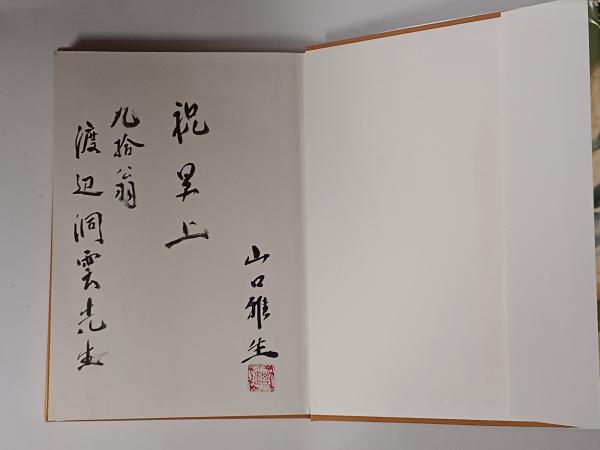 山口雅生
祝呈上
九拾翁
渡辺洞雲先生